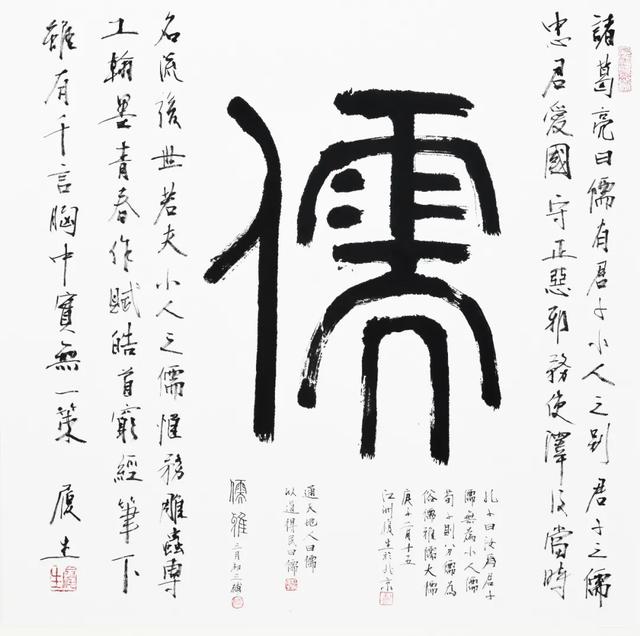 諸葛亮曰儒有君子小人之別君子之儒
忠君愛國守正惡邪務使澤及當時
儒
名流後世若夫小人之儒惟務雕蟲專
工翰墨青春作賦皓首窮經筆下
雖有千言胸中實無一策 履生
孔子曰汝為君子
儒無為小人儒
荀子則分儒為
俗儒雅儒大儒
庚子二月十五
江洲履生於北京
通天地人曰儒
以道得民曰儒
儒雅 三月初三補